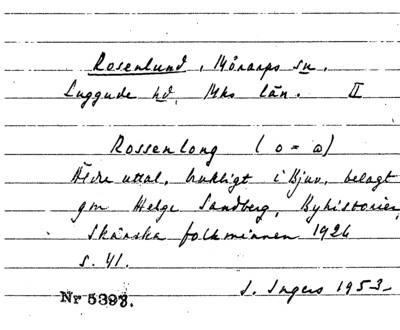 Rosenlund, Mörarps sn.
Luggude hd, Mhs län. II
Rossenlong (o = a)
Äldre uttal, brukligt i Bjuv, belagt
gm Helge Sandberg, Byhistorier,
Skånska folkminnen 1926
s. 41.
Nr 5393.
I. Ingers 1953-